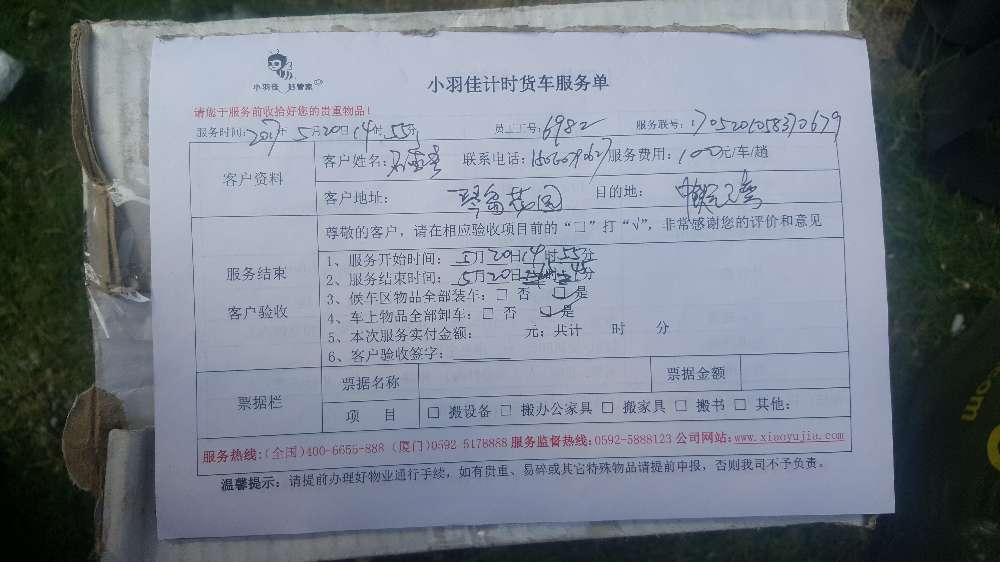 小羽佳 好管家
小羽佳计时货车服务单
请您于服务前收拾好您的贵重物品！
服务时间：2017年5月20日14时55分 员工工号：6982 服务联号：170520105830679
客户资料
客户姓名： 联系电话： 服务费用：100元/车/趟
客户地址： 目的地：
尊敬的客户，请在相应验收项目前的“□”打“√”，非常感谢您的评价和意见
服务结束
客户验收
1、服务开始时间：5月20日14时55分
2、服务结束时间：5月20日 时 分
3、候车区物品全部装车：□ 否 □ 是
4、车上物品全部卸车：□ 否 □ 是
5、本次服务实付金额： 元；共计 时 分
6、客户验收签字：
票据栏
票据名称 票据金额
项 目 □ 搬设备 □ 搬办公家具 □ 搬家具 □ 搬书 □ 其他：
服务热线：(全国)400-6655-888 (厦门)0592 5178888 服务监督热线：0592-5888123 公司网站：www.xiaoyujia.com
温馨提示：请提前办理好物业通行手续，如有贵重、易碎或其它特殊物品请提前申报，否则我司不予负责。